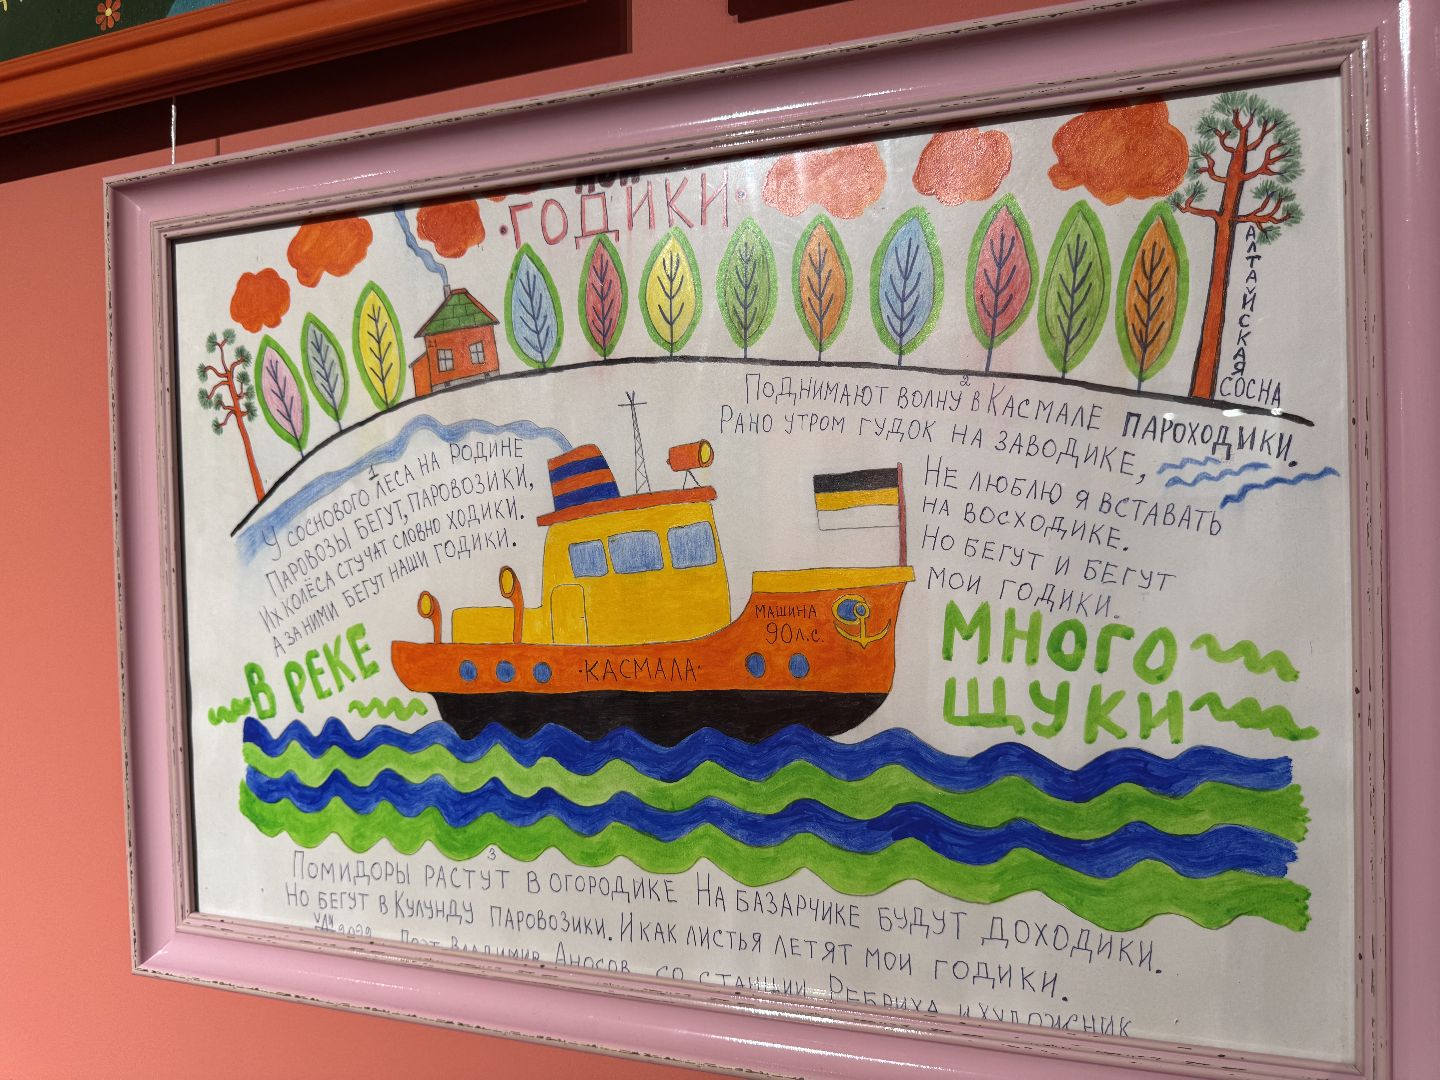 МОИ
·ГОДИКИ·
АЛТАЙСКАЯ
СОСНА
1
У СОСНОВОГО ЛЕСА НА РОДИНЕ
ПАРОВОЗЫ БЕГУТ, ПАРОВОЗИКИ,
ИХ КОЛЁСА СТУЧАТ СЛОВНО ХОДИКИ.
А ЗА НИМИ БЕГУТ НАШИ ГОДИКИ.
2
ПОДНИМАЮТ ВОЛНУ В КАСМАЛЕ ПАРОХОДИКИ.
РАНО УТРОМ ГУДОК НА ЗАВОДИКЕ,
НЕ ЛЮБЛЮ Я ВСТАВАТЬ
НА ВОСХОДИКЕ.
НО БЕГУТ И БЕГУТ
МОИ ГОДИКИ.
МАШИНА
90 Л.С.
·КАСМАЛА·
В РЕКЕ
МНОГО
ЩУКИ
3
ПОМИДОРЫ РАСТУТ В ОГОРОДИКЕ НА БАЗАРЧИКЕ БУДУТ ДОХОДИКИ.
НО БЕГУТ В КУЛУНДУ ПАРОВОЗИКИ. И КАК ЛИСТЬЯ ЛЕТЯТ МОИ ГОДИКИ.
2022 ПОЭТ ВЛАДИМИР АНОСОВ СО СТАНЦИИ РЕБРИХА И ХУДОЖНИК